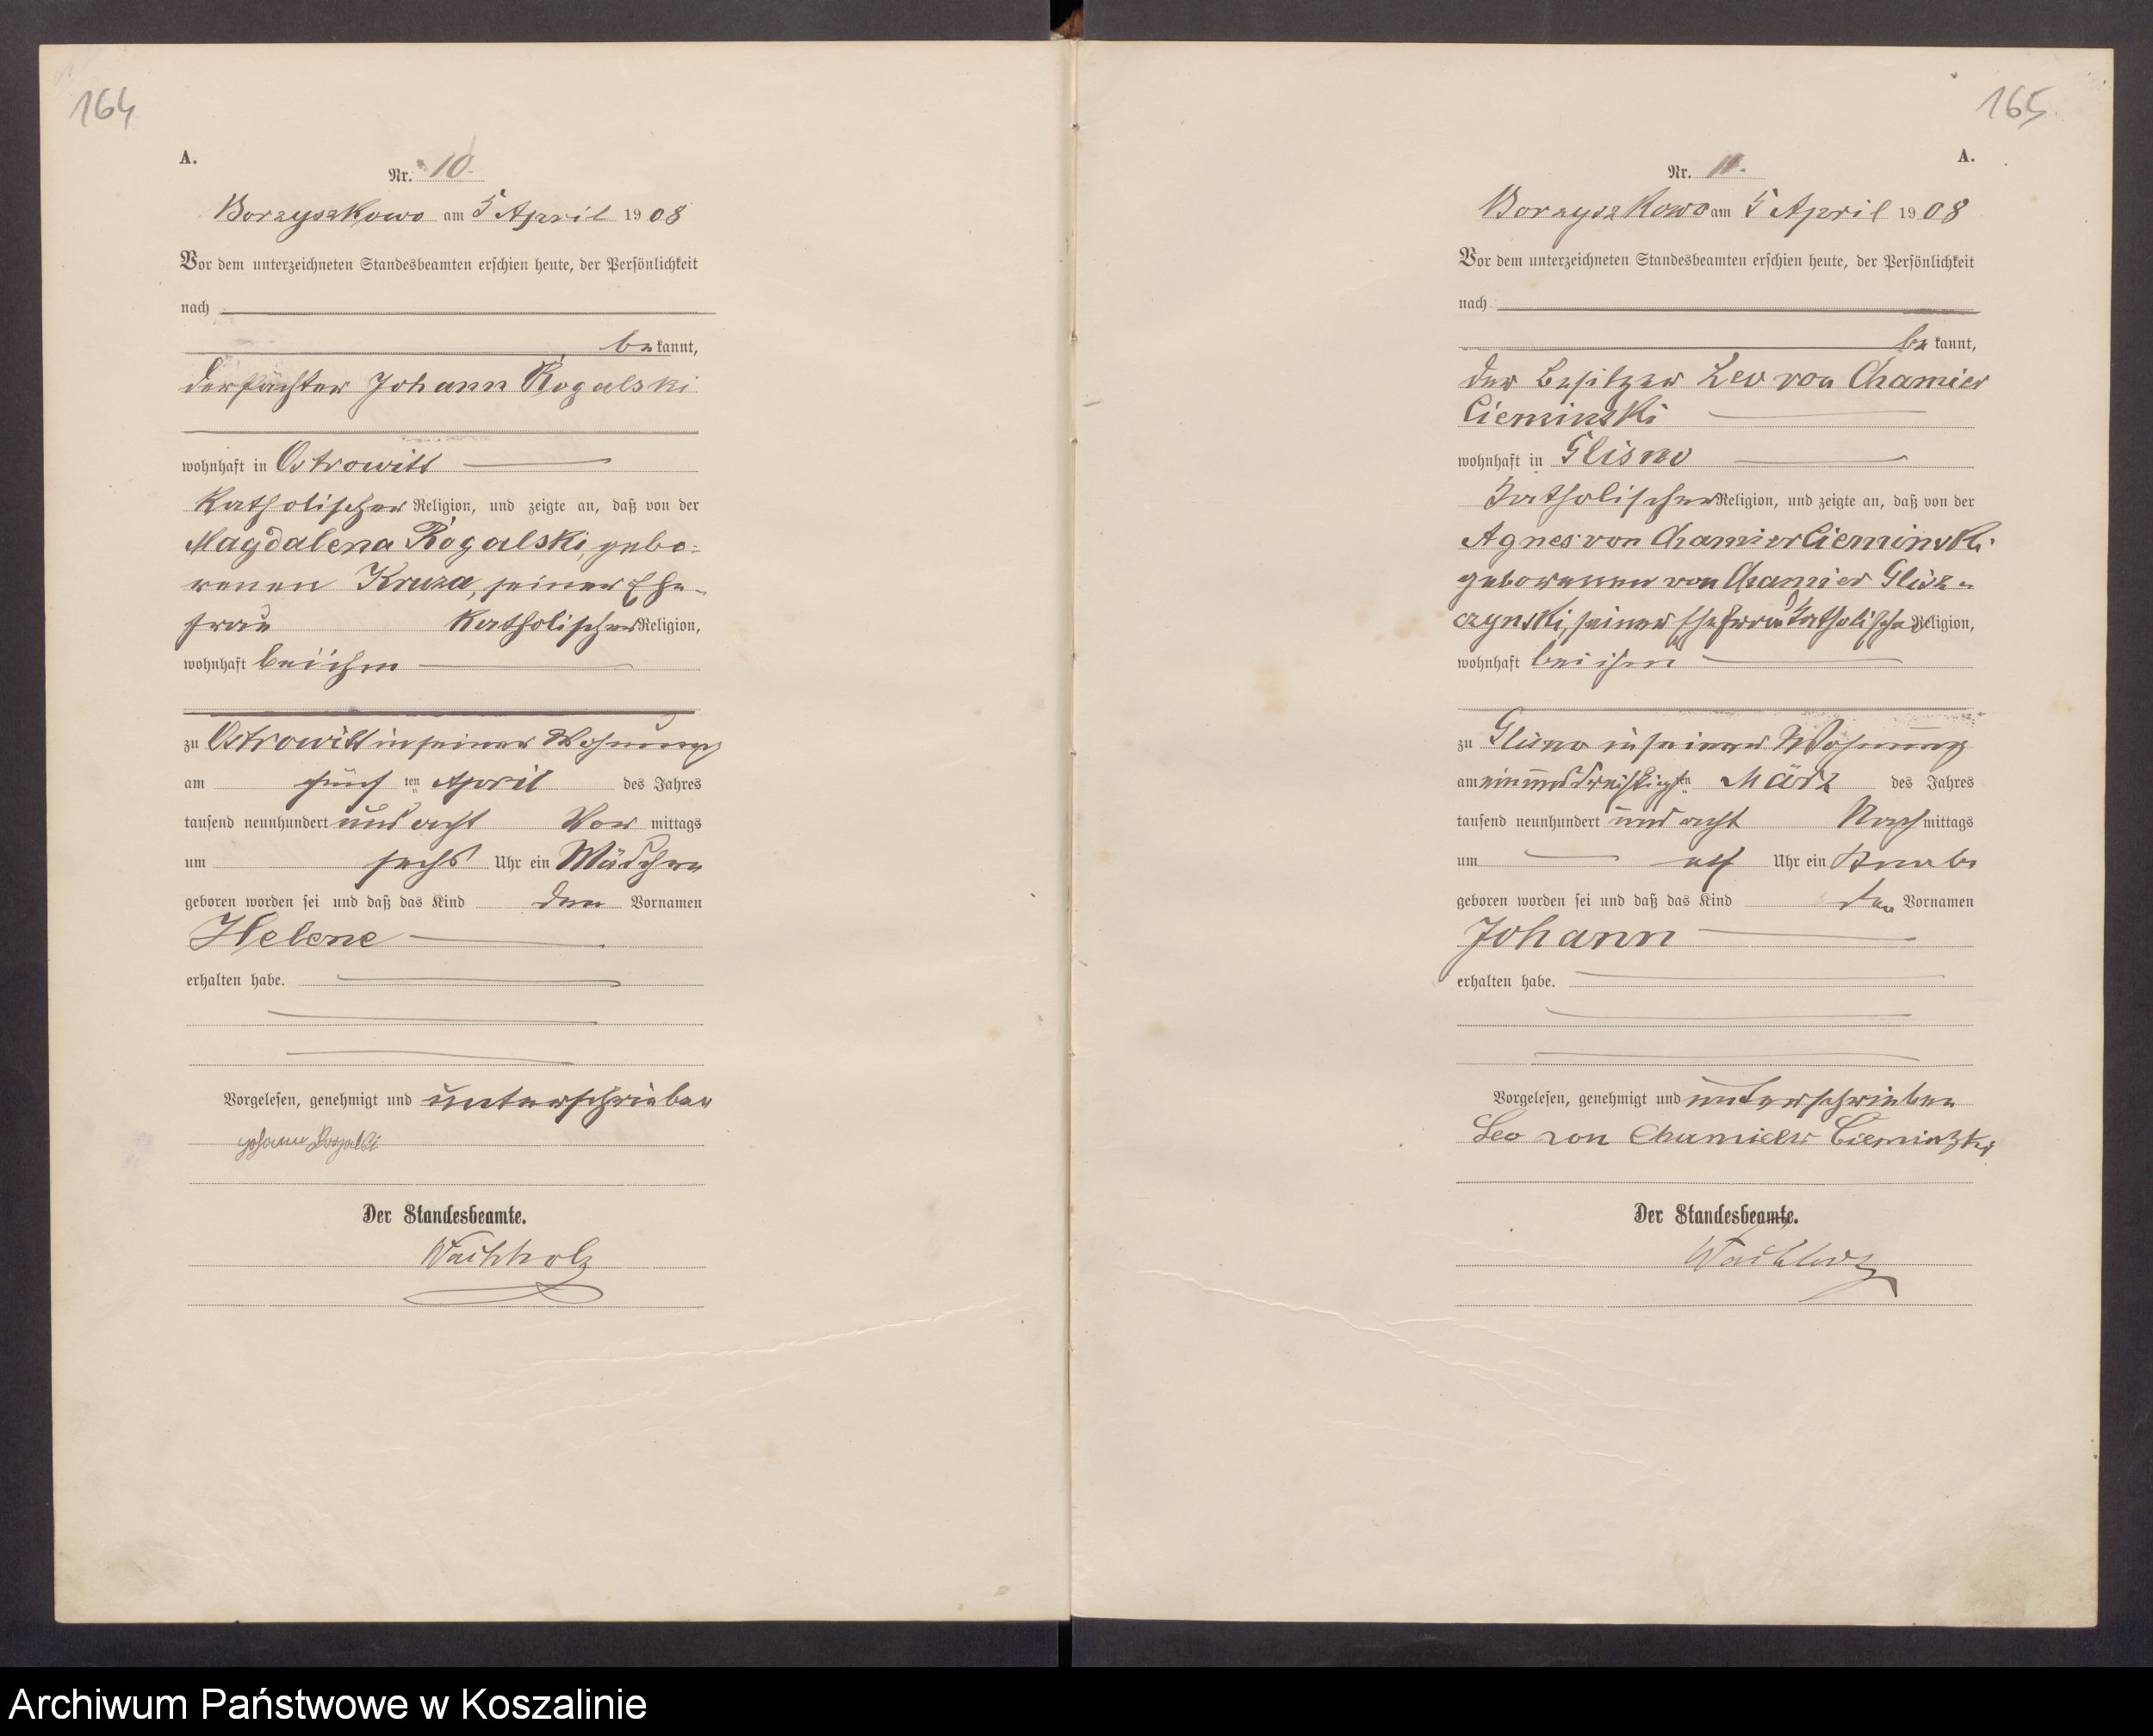 164
A.
Nr. 10.
Borzyszkowo am 5 April 1908
Vor dem unterzeichneten Standesbeamten erschien heute, der Persönlichkeit
nach
bekannt,
der Pächter Johann Rogalski
wohnhaft in Ostrowitt
Katholischer Religion, und zeigte an, daß von der
Magdalena Rogalski, gebo-
renen Kruza, seiner Ehe-
frau Katholischer Religion,
wohnhaft bei ihm
zu Ostrowitt in seiner Wohnung
am fünften April des Jahres
tausend neunhundert und acht Vormittags
um sechs Uhr ein Mädchen
geboren worden sei und daß das Kind den Vornamen
Helene
erhalten habe.
Vorgelesen, genehmigt und unterschrieben
Johann Rogalski
Der Standesbeamte.
165
A.
Nr. 11.
Borzyszkowo am 5 April 1908
Vor dem unterzeichneten Standesbeamten erschien heute, der Persönlichkeit
nach
bekannt,
der Besitzer Leo von Chamier
Cieminski
wohnhaft in Glisno
Katholischer Religion, und zeigte an, daß von der
Agnes von Chamier Cieminski
geborenen von Chamier Glisz-
czynski, seiner Ehefrau Katholischer Religion,
wohnhaft bei ihm
zu Glisno in seiner Wohnung
am einunddreißigsten März des Jahres
tausend neunhundert und acht Nachmittags
um elf Uhr ein Knabe
geboren worden sei und daß das Kind den Vornamen
Johann
erhalten habe.
Vorgelesen, genehmigt und unterschrieben
Leo von Chamier Cieminski
Der Standesbeamte.
Archiwum Państwowe w Koszalinie